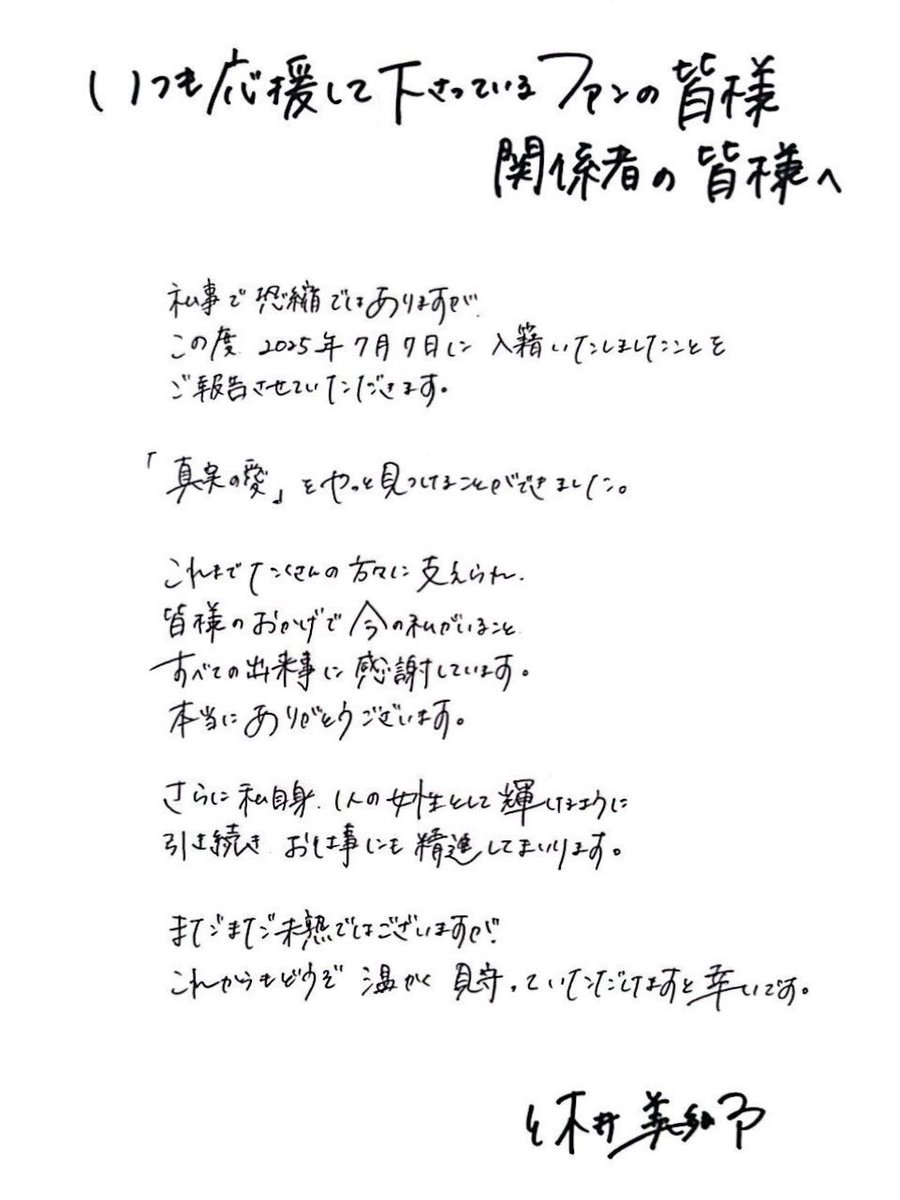 いつも応援して下さっているファンの皆様
関係者の皆様へ
私事で恐縮ではありますが、
この度、2025年7月7日に入籍いたしましたことを
ご報告させていただきます。
「真実の愛」をやっと見つけることができました。
これまでたくさんの方々に支えられ、
皆様のおかげで今の私がいること、
すべての出来事に感謝しています。
本当にありがとうございます。
さらに私自身、1人の女性として輝けるように
引き続き お仕事にも精進してまいります。
まだまだ未熟ではございますが、
これからもどうぞ 温かく 見守っていただけますと幸いです。